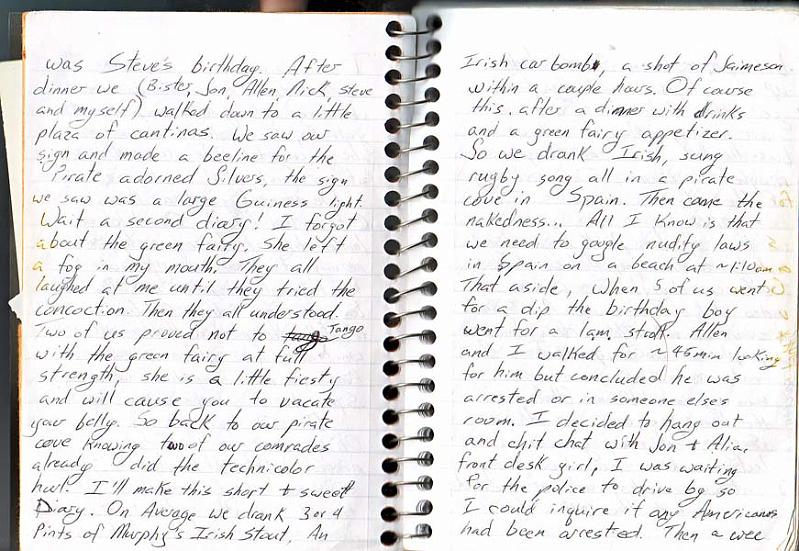 was Steve's birthday. After
dinner we (Bister, Jon, Allen, Nick, Steve
and myself) walked down to a little
plaza of cantinas. We saw our
sign and made a beeline for the
Pirate adorned Silvers, the sign
we saw was a large Guiness light.
Wait a second diary! I forgot
about the green fairy. She left
a fog in my mouth. They all
laughed at me until they tried the
concoction. Then they all understood.
Two of us proved not to Tango
with the green fairy at full
strength, she is a little fiesty
and will cause you to vacate
your belly. So back to our pirate
cove knowing two of our comrades
already did the technicolor
hurl. I'll make this short + sweet
Diary. On Average we drank 3 or 4
Pints of Murphy's Irish Stout, An
Irish car bomb, a shot of Jaimeson
within a couple hours. Of course
this, after a dinner with drinks
and a green fairy appetizer.
So we drank Irish, sung
rugby song all in a pirate
cove in Spain. Then came the
nakedness... All I know is that
we need to google nudity laws
in Spain on a beach at ~1:10am
That aside, when 5 of us went
for a dip the birthday boy
went for a 1am stroll. Allen
and I walked for ~45min looking
for him but concluded he was
arrested or in someone else's
room. I decided to hang out
and chit chat with Jon + Alia,
front desk girl, I was waiting
for the police to drive by so
I could inquire if any Americanos
had been arrested. Then a wee